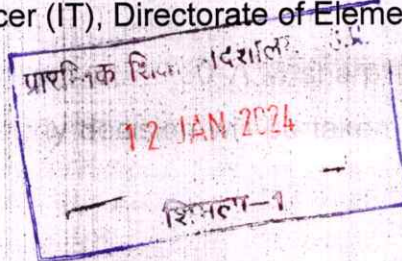 cer (IT), Directorate of Eleme
प्रारम्भिक
12 JAN 2024
शिमला-1